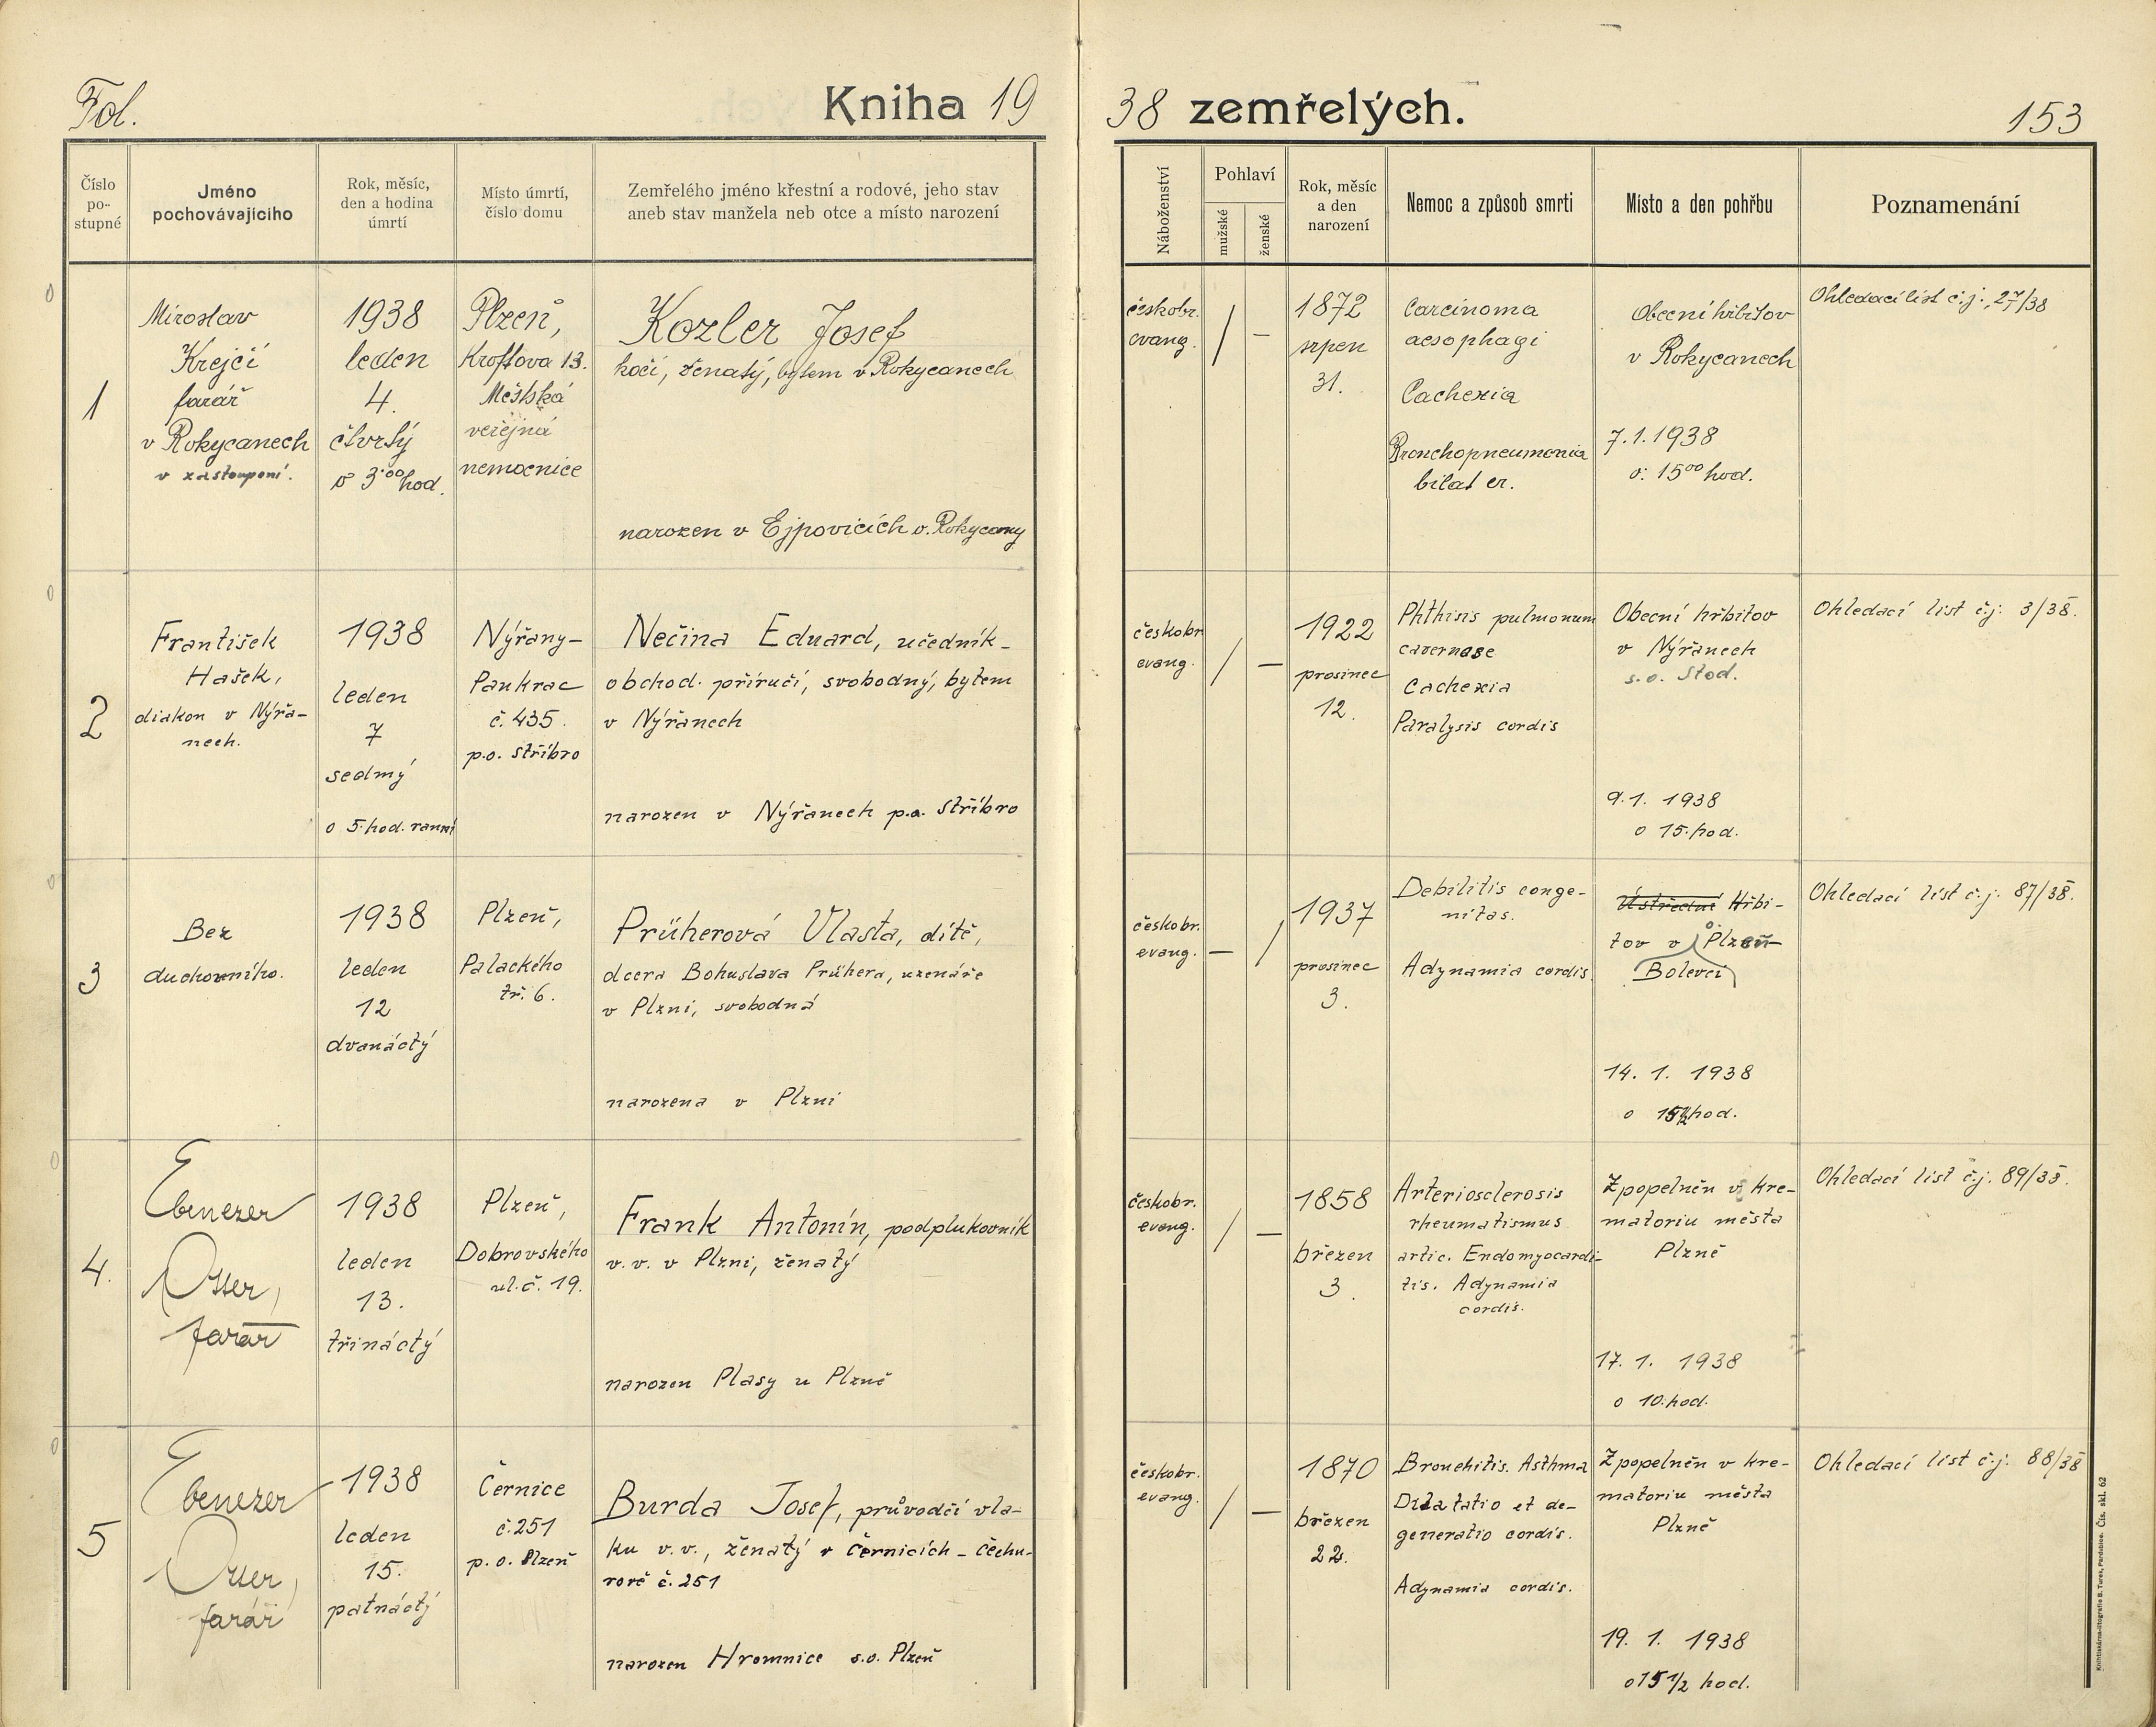 Fol.
Kniha 1938 zemřelých.
153
Číslo po-stupné
Jméno pochovávajícího
Rok, měsíc, den a hodina úmrtí
Místo úmrtí, číslo domu
Zemřelého jméno křestní a rodové, jeho stav aneb stav manžela neb otce a místo narození
Náboženství
Pohlaví
mužské
ženské
Rok, měsíc a den narození
Nemoc a způsob smrti
Místo a den pohřbu
Poznamenání
1
Miroslav
Krejčí
farář
v Rokycanech
v zastoupení.
1938
leden
4.
čtvrtý
o 3·00 hod.
Plzeň,
Kroftova 13.
Městská
veřejná
nemocnice
Kozler Josef
kočí, ženatý, bytem v Rokycanech
narozen v Ejpovicích o. Rokycany
českobr.
evang.
/
–
1872
srpen
31.
Carcinoma
aesophagi
Cachexia
Bronchopneumonia
bilater.
Obecní hřbitov
v Rokycanech
7.1.1938
o: 15 00 hod.
Ohledací list č.j.: 27/38
2
František
Hašek,
diakon v Nýřa-
nech.
1938
leden
7
sedmý
o 5·hod. ranní
Nýřany-
Pankrac
č. 435.
p.o. Stříbro
Nečina Eduard, učedník-
obchod. příručí, svobodný, bytem
v Nýřanech
narozen v Nýřanech p.o. Stříbro
českobr.
evang.
/
–
1922
prosinec
12.
Phthisis pulmonum
cavernose
Cachexia
Paralysis cordis
Obecní hřbitov
v Nýřanech
s.o. Stod.
9.1. 1938
o 15·hod.
Ohledací list č.j. 3/38.
3
Bez
duchovního.
1938
leden
12
dvanáctý
Plzeň,
Palackého
tř. 6.
Průherová Vlasta, dítě,
dcera Bohuslava Průhera, uzenáře
v Plzni, svobodná
narozena v Plzni
českobr.
evang.
–
/
1937
prosinec
3.
Debilitis conge-
nitas.
Adynamia cordis.
Ústřední Hřbi-
tov v Plzeň
Bolevci
14. 1. 1938
o 15½ hod.
Ohledací list č.j. 87/38.
4.
Ebenezer
Otter,
farář
1938
leden
13.
třináctý
Plzeň,
Dobrovského
ul. č. 19.
Frank Antonín, podplukovník
v.v. v Plzni, ženatý
narozen Plasy u Plzně
českobr.
evang.
/
–
1858
březen
3.
Arteriosclerosis
rheumatismus
artic. Endomyocardi-
tis. Adynamia
cordis.
Zpopelněn v kre-
matoriu města
Plzně
17. 1. 1938
o 10·hod.
Ohledací list č.j. 89/38.
5
Ebenezer
Otter,
farář
1938
leden
15.
patnáctý
Černice
č. 251
p.o. Plzeň
Burda Josef, průvodčí vla-
ku v.v., ženatý v Černicích – Čechu-
rově č. 251
narozen Hromnice s.o. Plzeň
českobr.
evang.
/
–
1870
březen
22.
Bronchitis. Asthma
Dilatatio et de-
generatio cordis.
Adynamia cordis.
Zpopelněn v kre-
matoriu města
Plzně
19. 1. 1938
o 15 1/2 hod.
Ohledací list č.j. 88/38